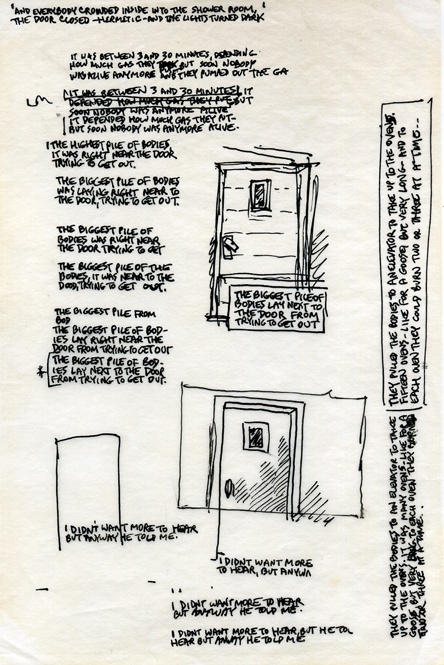 "AND EVERYBODY CROWDED INSIDE INTO THE SHOWER ROOM,
THE DOOR CLOSED -HERMETIC- AND THE LIGHTS TURNED DARK
IT WAS BETWEEN 3 AND 30 MINUTES, DEPENDING
HOW MUCH GAS THEY BUT SOON NOBODY
WAS ALIVE ANYMORE AND THEY PUMPED OUT THE GA
IT WAS BETWEEN 3 AND 30 MINUTES, IT
DEPENDED HOW MUCH GAS THEY PUT, BUT
SOON NOBODY WAS ANYMORE ALIVE
IT DEPENDED HOW MUCH GAS THEY PUT-
BUT SOON NOBODY WAS ANYMORE ALIVE.
THE HIGHEST PILE OF BODIES,
IT WAS RIGHT NEAR THE DOOR
TRYING TO GET OUT.
THE BIGGEST PILE OF BODIES
WAS LAYING RIGHT NEAR TO
THE DOOR, TRYING TO GET OUT.
THE BIGGEST PILE OF
BODIES WAS RIGHT NEAR
THE DOOR TRYING TO GET
THE BIGGEST PILE OF THE
BODIES, IT WAS NEAR TO THE
DOOR, TRYING TO GET OUT.
THE BIGGEST PILE FROM
BOD
THE BIGGEST PILE OF BOD-
IES LAY RIGHT NEAR THE
DOOR FROM TRYING TO GET OUT
THE BIGGEST PILE OF BOD-
IES LAY NEXT TO THE DOOR
FROM TRYING TO GET OUT.
THE BIGGEST PILE OF
BODIES LAY NEXT TO
THE DOOR FROM
TRYING TO GET OUT
I DIDN'T WANT MORE TO HEAR
BUT ANYWAY HE TOLD ME.
I DIDN'T WANT MORE
TO HEAR, BUT ANYWA
I DIDN'T WANT MORE TO HEAR
BUT ANYWAY HE TOLD ME.
I DIDN'T WANT MORE TO HEAR, BUT HE TOL
HEAR BUT ANYWAY HE TOLD ME.
THEY PULLED THE BODIES TO AN ELEVATOR TO TAKE UP TO THE OVENS.
FIFTEEN OVENS - LIKE FOR A GOOSE, BUT VERY LONG - AND TO
EACH OVEN THEY COULD BURN TWO OR THREE AT A TIME--
THEY PULLED THE BODIES TO AN ELEVATOR TO TAKE
UP TO THE OVENS. IT WAS MANY OVENS - LIKE FOR A
GOOSE, BUT VERY TO EACH OVEN THEY
THREE AT A TIME.